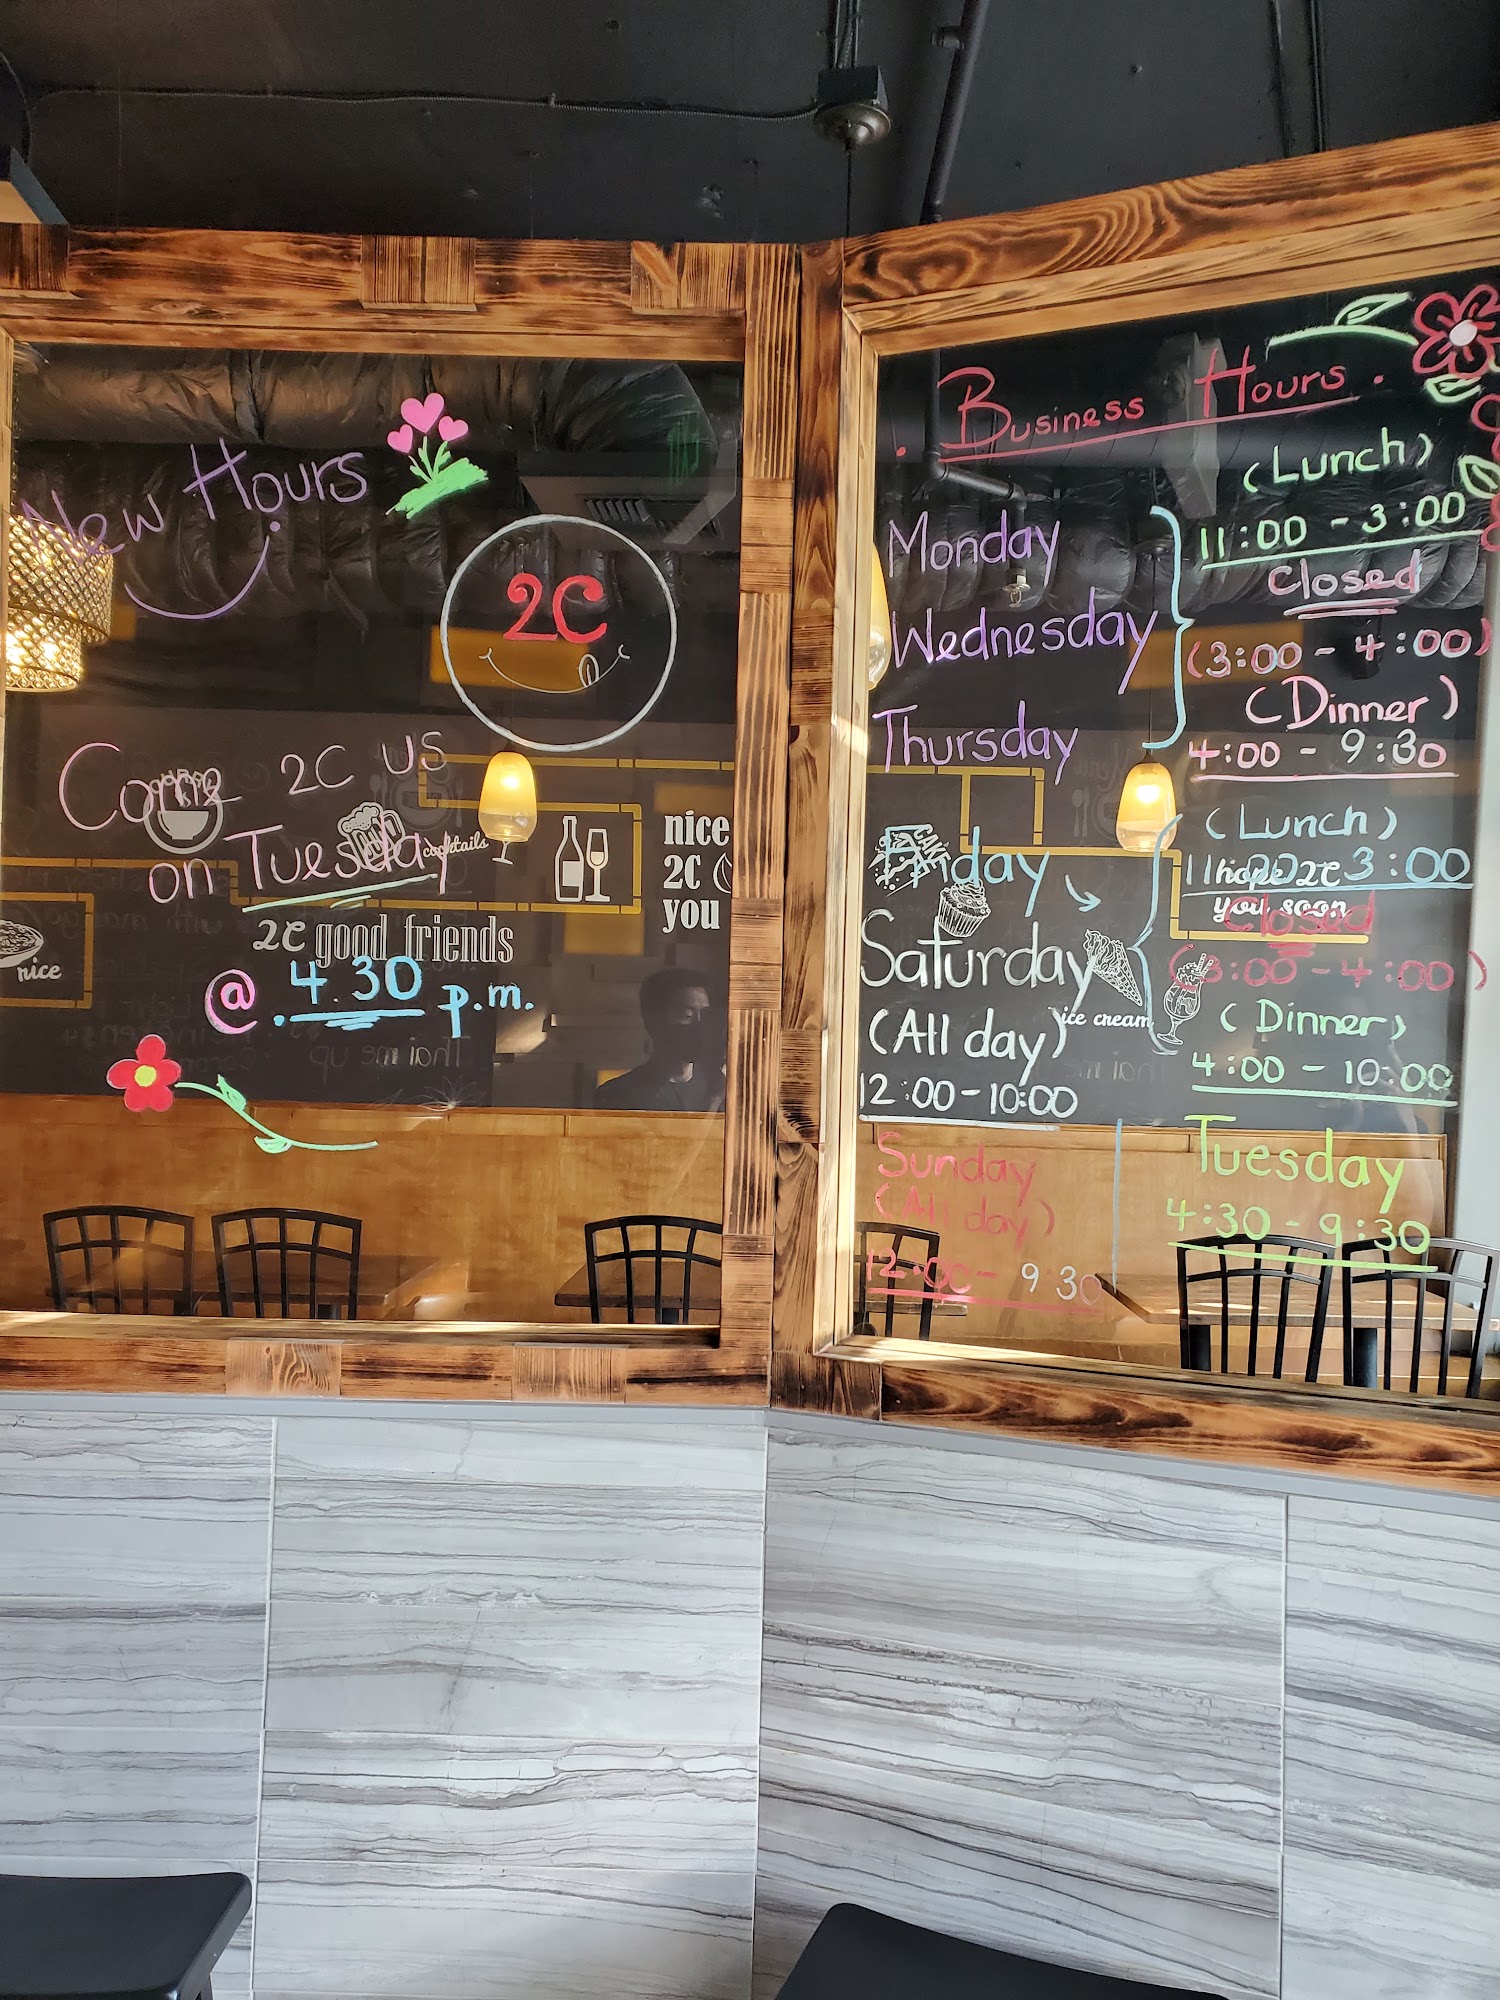 New Hours
2C
Come 2C us
on Tuesday
cocktails
nice
2C
you
2C good friends
rice
@ 4.30 p.m.
Thai me up
. Business Hours .
(Lunch)
Monday
11:00 - 3:00
Closed
Wednesday
(3:00 - 4:00)
(Dinner)
Thursday
4:00 - 9:30
(Lunch)
CAKE
Friday
3:00
hope 2C
you soon
Closed
Saturday
(3:00 - 4:00)
ice cream
(Dinner)
(All day)
4:00 - 10:00
12:00 - 10:00
Sunday
(All day)
12:00 - 9 30
Tuesday
4:30 - 9:30